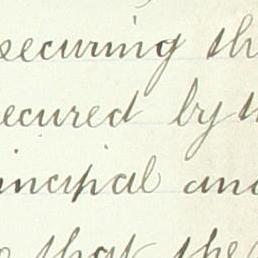 securing th
ecured by t
incipal and
that the